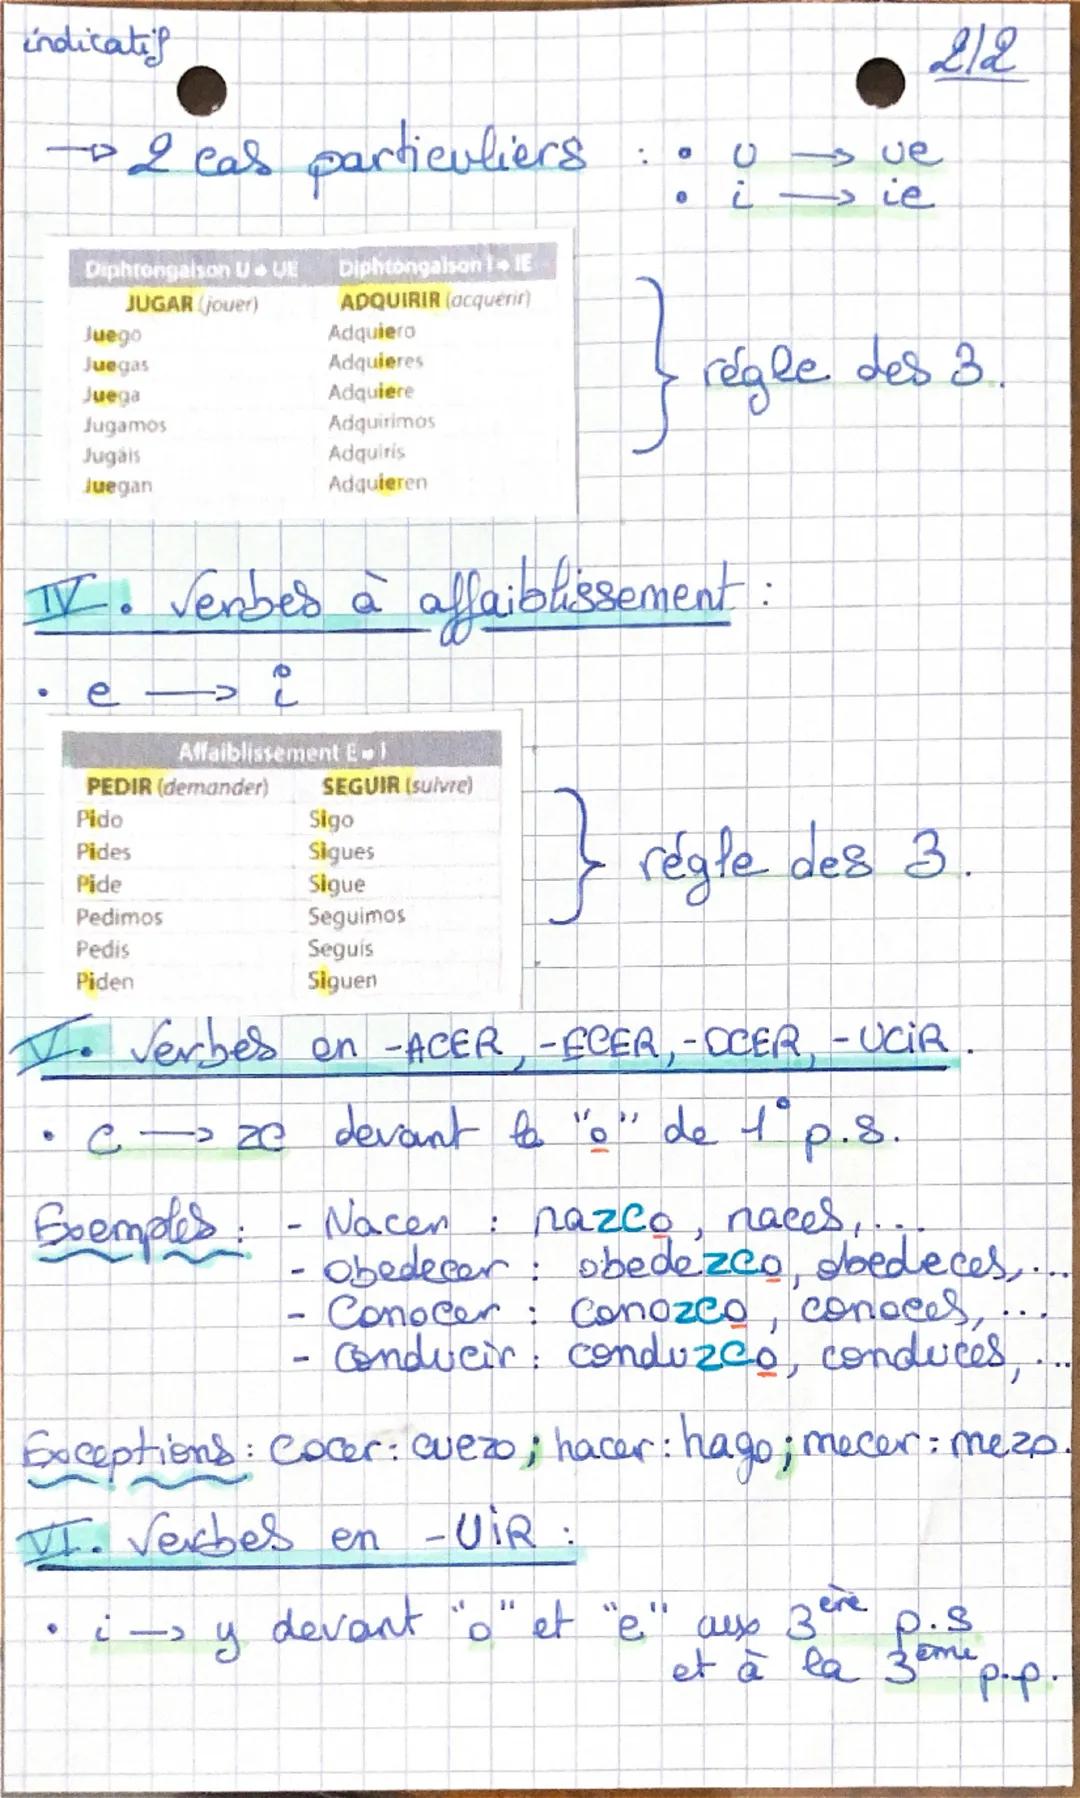 indicatif
2/2
→ 2 cas particuliers : • u → ue
• i → ie
Diphtongaison U → UE Diphtongaison I → IE
JUGAR (jouer) ADQUIRIR (acquérir)
Juego Adquiero
Juegas Adquieres
Juega Adquiere
Jugamos Adquirimos
Jugáis Adquirís
Juegan Adquieren
} régle des 3.
IV. Verbes à affaiblissement :
• e → i
Affaiblissement E → I
PEDIR (demander) SEGUIR (suivre)
Pido Sigo
Pides Sigues
Pide Sigue
Pedimos Seguimos
Pedís Seguís
Piden Siguen
} régle des 3.
V. Verbes en -ACER, -ECER, -OCER, -UCiR.
• c → zc devant la "o" de 1° p.s.
Exemples : - Nacer : nazco, naces, ...
- Obedecer : obedezco, obedeces, ...
- Conocer : Conozco, conoces, ...
- Conducir : conduzco, conduces, ...
Exceptions : Cocer : cuezo ; hacer : hago ; mecer : mezo.
VI. Verbes en -UiR :
• i → y devant "o" et "e" aux 3ère p.s
et à la 3ème p.p.